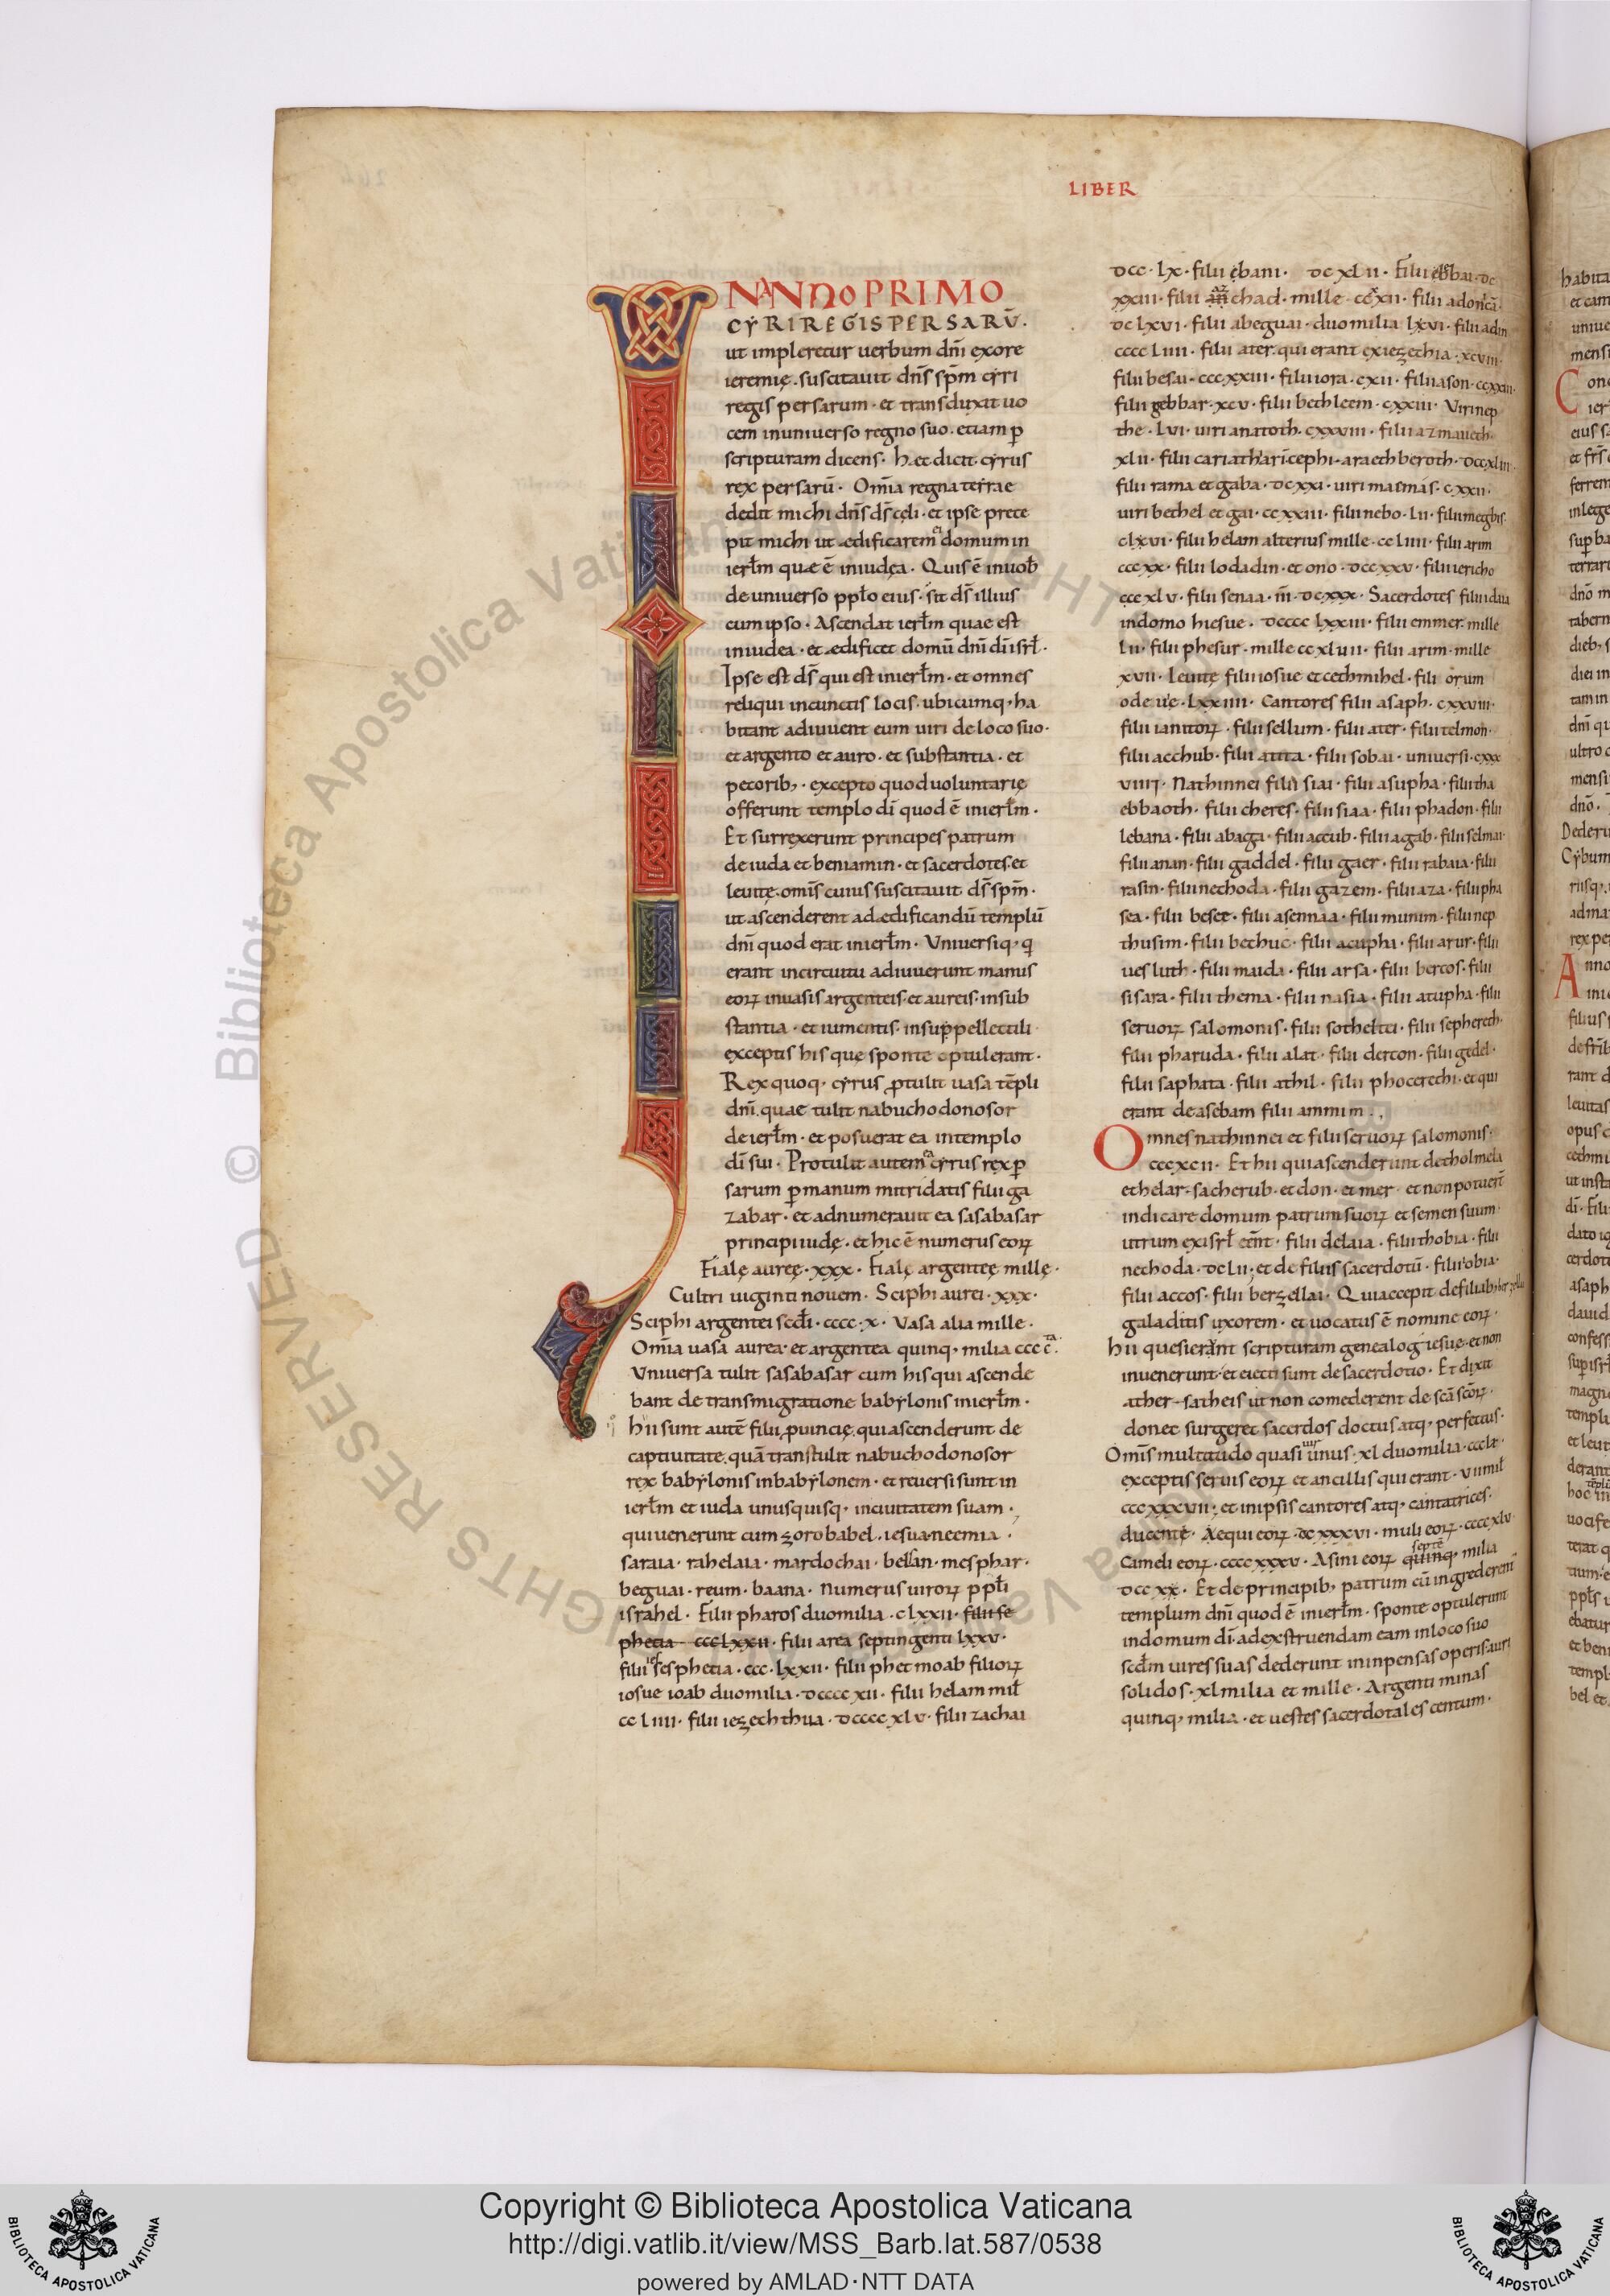 LIBER
IN ANNO PRIMO
CYRI REGIS PERSARŪ.
ut impleretur uerbum dn̄i exore
ieremię. suscitauit dn̄s sp̄m cyri
regis persarum · et transduxit uo
cem inuniuerso regno suo · etiam p̄
scripturam dicens · Hæc dicit cyrus
rex persarū · Om̄ia regna terrae
dedit michi dn̄s ds̄ cęli · et ipse prece
pit michi ut aedificarem ei domum in
ierl̄m quae ē iniudęa · Quis ē inuob̄
de uniuerso ppl̄o eius · sit ds̄ illius
cum ipso · Ascendat ierl̄m quae est
iniudea · et aedificet domū dn̄i dī isrl̄ ·
Ipse est ds̄ qui est inierl̄m · et omnes
reliqui incunctis locis · ubicumq, ha
bitant adiuuent eum uiri de loco suo ·
et argento et auro · et substantia · et
pecorib, · excepto quod uoluntarię
offerunt templo dī quod ē inierl̄m ·
Et surrexerunt principes patrum
de iuda et beniamin · et sacerdotes et
leuitę · omīs cuius suscitauit ds̄ sp̄m ·
ut ascenderent ad aedificandū templū
dn̄i quod erat inierl̄m · Vniuersiq, q̄
erant incircuitu adiuuerunt manus
eoꝝ inuasis argenteis et aureis · insub
stantia · et iumentis · insuppellectili ·
exceptis his que sponte optulerant ·
Rex quoq, cyrus ꝓtulit uasa tēpli
dn̄i quae tulit nabuchodonosor
de ierl̄m · et posuerat ea intemplo
dī sui · Protulit autem ea cyrus rex p̄
sarum p̄ manum mitridatis filii ga
zabar · et adnumerauit ea sasabasar
principi iudę · et hic ē numerus eoꝝ
Fialę aureę · xxx · Fialę argenteę mille ·
Cultri uiginti nouem · Sciphi aurei · xxx ·
Sciphi argentei scd̄i · cccc · x · Vasa alia mille ·
Om̄ia uasa aurea et argentea quinq, milia cccc ta
Vniuersa tulit sasabasar cum his qui ascende
bant de transmigratione babylonis inierl̄m ·
Hii sunt autē filii ꝓuincię qui ascenderunt de
captiuitate quā transtulit nabuchodonosor
rex babylonis inbabylonem · et reuersi sunt in
ierl̄m et iuda unusquisq, inciuitatem suam ·
qui uenerunt cum zorobabel · iesua neemia ·
saraia · rahelaia · mardochai · belsan · mesphar ·
beguai · reum · baana · Numerus uiroꝝ ppl̄i
israhel · Filii pharos duomilia · clxxii · filii se
phetia ccclxxii · filii area septingenti lxxv ·
filii sesphetia · ccc · lxxii · filii phet moab filioꝝ
iosue ioab duomilia · dcccc xii · filii helam mil̄
cc liiii · filii iezechthua · dcccc xlv · filii zachai
dcc · lx · filii ębani · dc xlii · Filii ebbai · dc
xxiii · filii chad · mille · ccxxii · filii adonicā ·
dc lxvi · filii abeguai · duo milia lxvi · filii adin
cccc liiii · filii ater qui erant ex iezechia · xcviii ·
filii besai · cccxxiii · filii iora · cxii · filii ason · ccxxiii ·
filii gebbar · xcv · filii bethleem · cxxiii · Viri nep
the · lvi · uiri anatoth · cxxviii · filii azmaueth ·
xlii · filii cariathiari cephi · araeth beroth · dccxliii ·
filii rama et gaba · dcxxi · uiri masmas · cxxii ·
uiri bethel et gai · ccxxiii · filii nebo · lii · filii megbis ·
clvi · filii helam alterius mille · cc liiii · filii arim
cccxx · filii lodadin · et ono · dccxxv · filii iericho
cccxlv · filii senaa · m̄ · dcxxx · Sacerdotes filii idaia
indomo hiesue · dcccc lxxiii · filii emmer · mille
lii · filii phesur · mille cc xluii · filii arim · mille
xvii · Leuitę filii iosue et cethmihel · filii orum
odeuie · lxxiiii · Cantores filii asaph · cxxviii ·
filii ianitoꝝ · filii sellum · filii ater · filii telmon ·
filii acchub · filii atita · filii sobai · uniuersi · cxxx
viiii · Nathinnei filii siai · filii asupha · filii tha
ebbaoth · filii cheres · filii siaa · filii phadon · filii
lebana · filii abaga · filii accub · filii agab · filii selmai ·
filii anan · filii gaddel · filii gaer · filii rabaia · filii
rasin · filii nechoda · filii gazem · filii aza · filii pha
sea · filii besee · filii asennaa · filii munim · filii nep
thusim · filii bethuc · filii acupha · filii arur · filii
ues luth · filii mauda · filii arsa · filii bercos · filii
sisara · filii thema · filii nasia · filii atupha · filii
seruoꝝ salomonis · filii sotheltei · filii sephereth ·
filii pharuda · filii alat · filii dercon · filii gedel ·
filii saphata · filii athil · filii phocerethi · et qui
erant de asebam filii ammim · ,
Omnes nathinnei et filii seruoꝝ salomonis ·
cccxcii · Et hii qui ascenderunt detholmela
ethelar · sacherub · et don · et mer · et non potuerī
indicare domum patrum suoꝝ et semen suum
utrum ex isrl̄ eēnt · filii delaia · filii thobia · filii
nechoda · dclii · et de filiis sacerdotū · filii obia ·
filii accos · filii berzellai · Qui accepit de filiab,
galaditis uxorem · et uocatus ē nomine eoꝝ ·
Hii quesierant scripturam genealogię suę · et non
inuenerunt · et eiecti sunt de sacerdotio · Et dixit
ather satheis ut non comederent de scā scōꝝ ·
donec surgeret sacerdos doctus atq, perfectus ·
Omīs multitudo quasi unus · xl duo milia · ccclx ·
exceptis seruis eoꝝ et ancillis qui erant · vii mil̄
cccxxxvii · et in ipsis cantores atq, cantatrices ·
ducentę · Aequi eoꝝ · dcxxxvi · muli eoꝝ · ccccxlv
Cameli eoꝝ · ccccxxxv · Asini eoꝝ quinq, septē milia
dccxx · Et de principib, patrum cū ingrederent̄
templum dn̄i quod ē inierl̄m · sponte optulerunt
indomum dī · ad exstruendam eam inloco suo
scd̄m uires suas dederunt ininpensas operis auri
solidos · xl milia et mille · Argenti minas
quinq, milia · et uestes sacerdotales centum ·
Copyright © Biblioteca Apostolica Vaticana
http://digi.vatlib.it/view/MSS_Barb.lat.587/0538
powered by AMLAD·NTT DATA
BIBLIOTECA APOSTOLICA VATICANA
BIBLIOTECA APOSTOLICA VATICANA